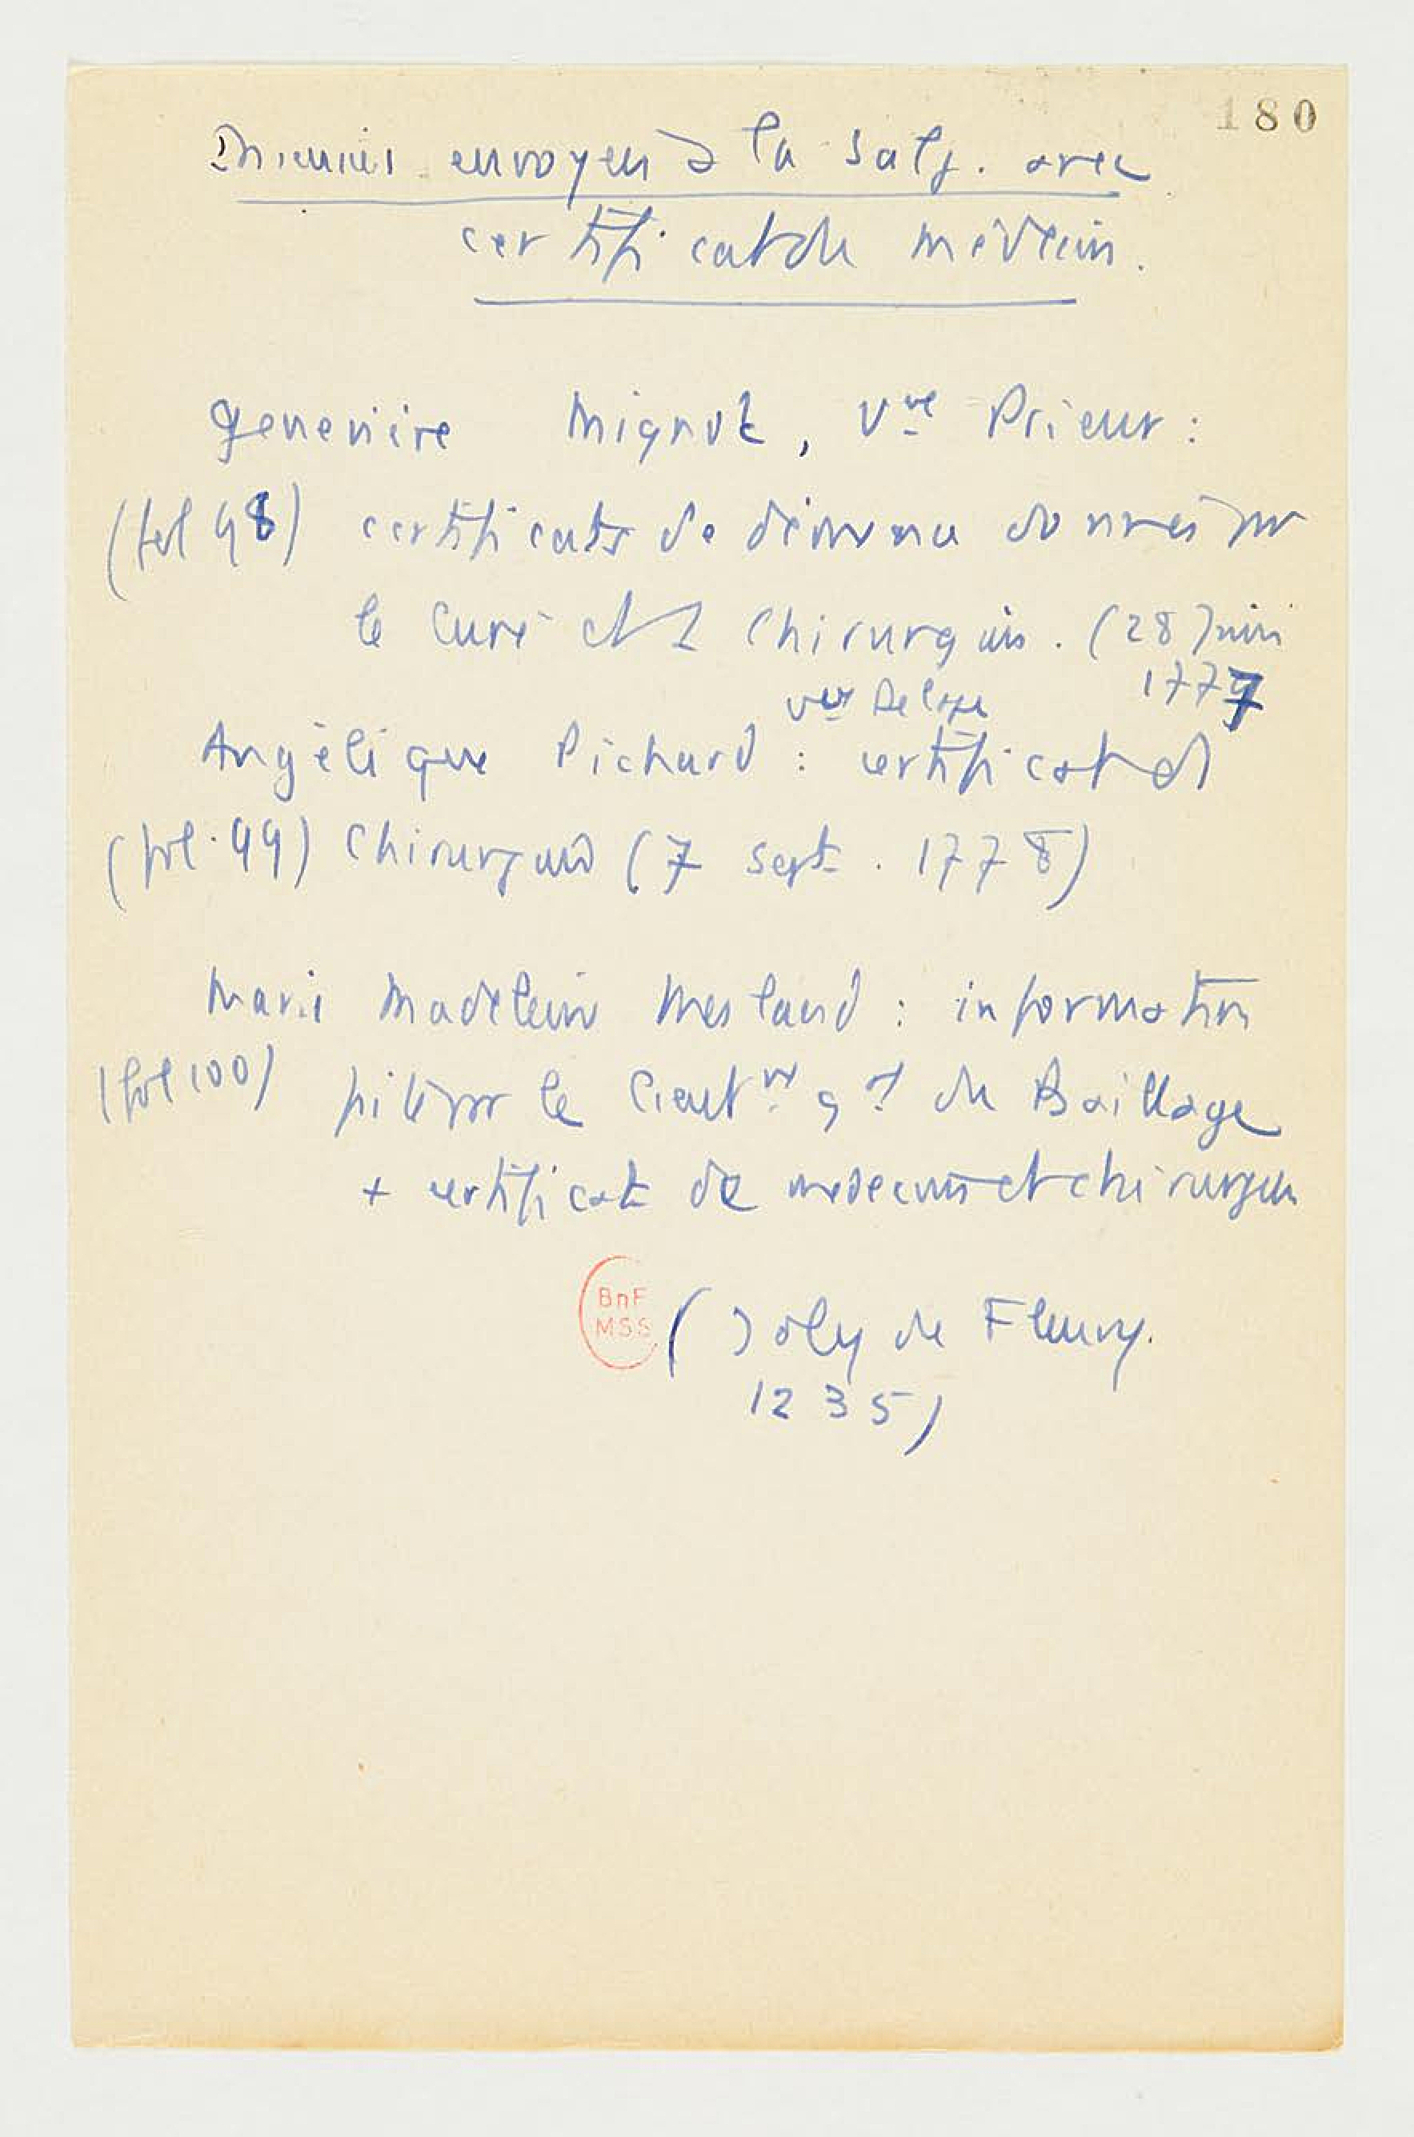 180
envoyées à la Salp. avec
certificat de médecin.
Geneviève Mignot, Vve Prieur :
(fol 98) certificats de démence donnés par
le Curé et 2 chirurgiens. (28 juin
1777
vve
Angélique Pichard : certificat de
(fol. 99) Chirurgien (7 sept. 1778)
Marie Madeleine Mesland : information
(fol 100) faite par le Lieutnt gal du Baillage
+ certificat de médecins et chirurgiens
BnF
MSS
(Joly de Fleury.
1235)